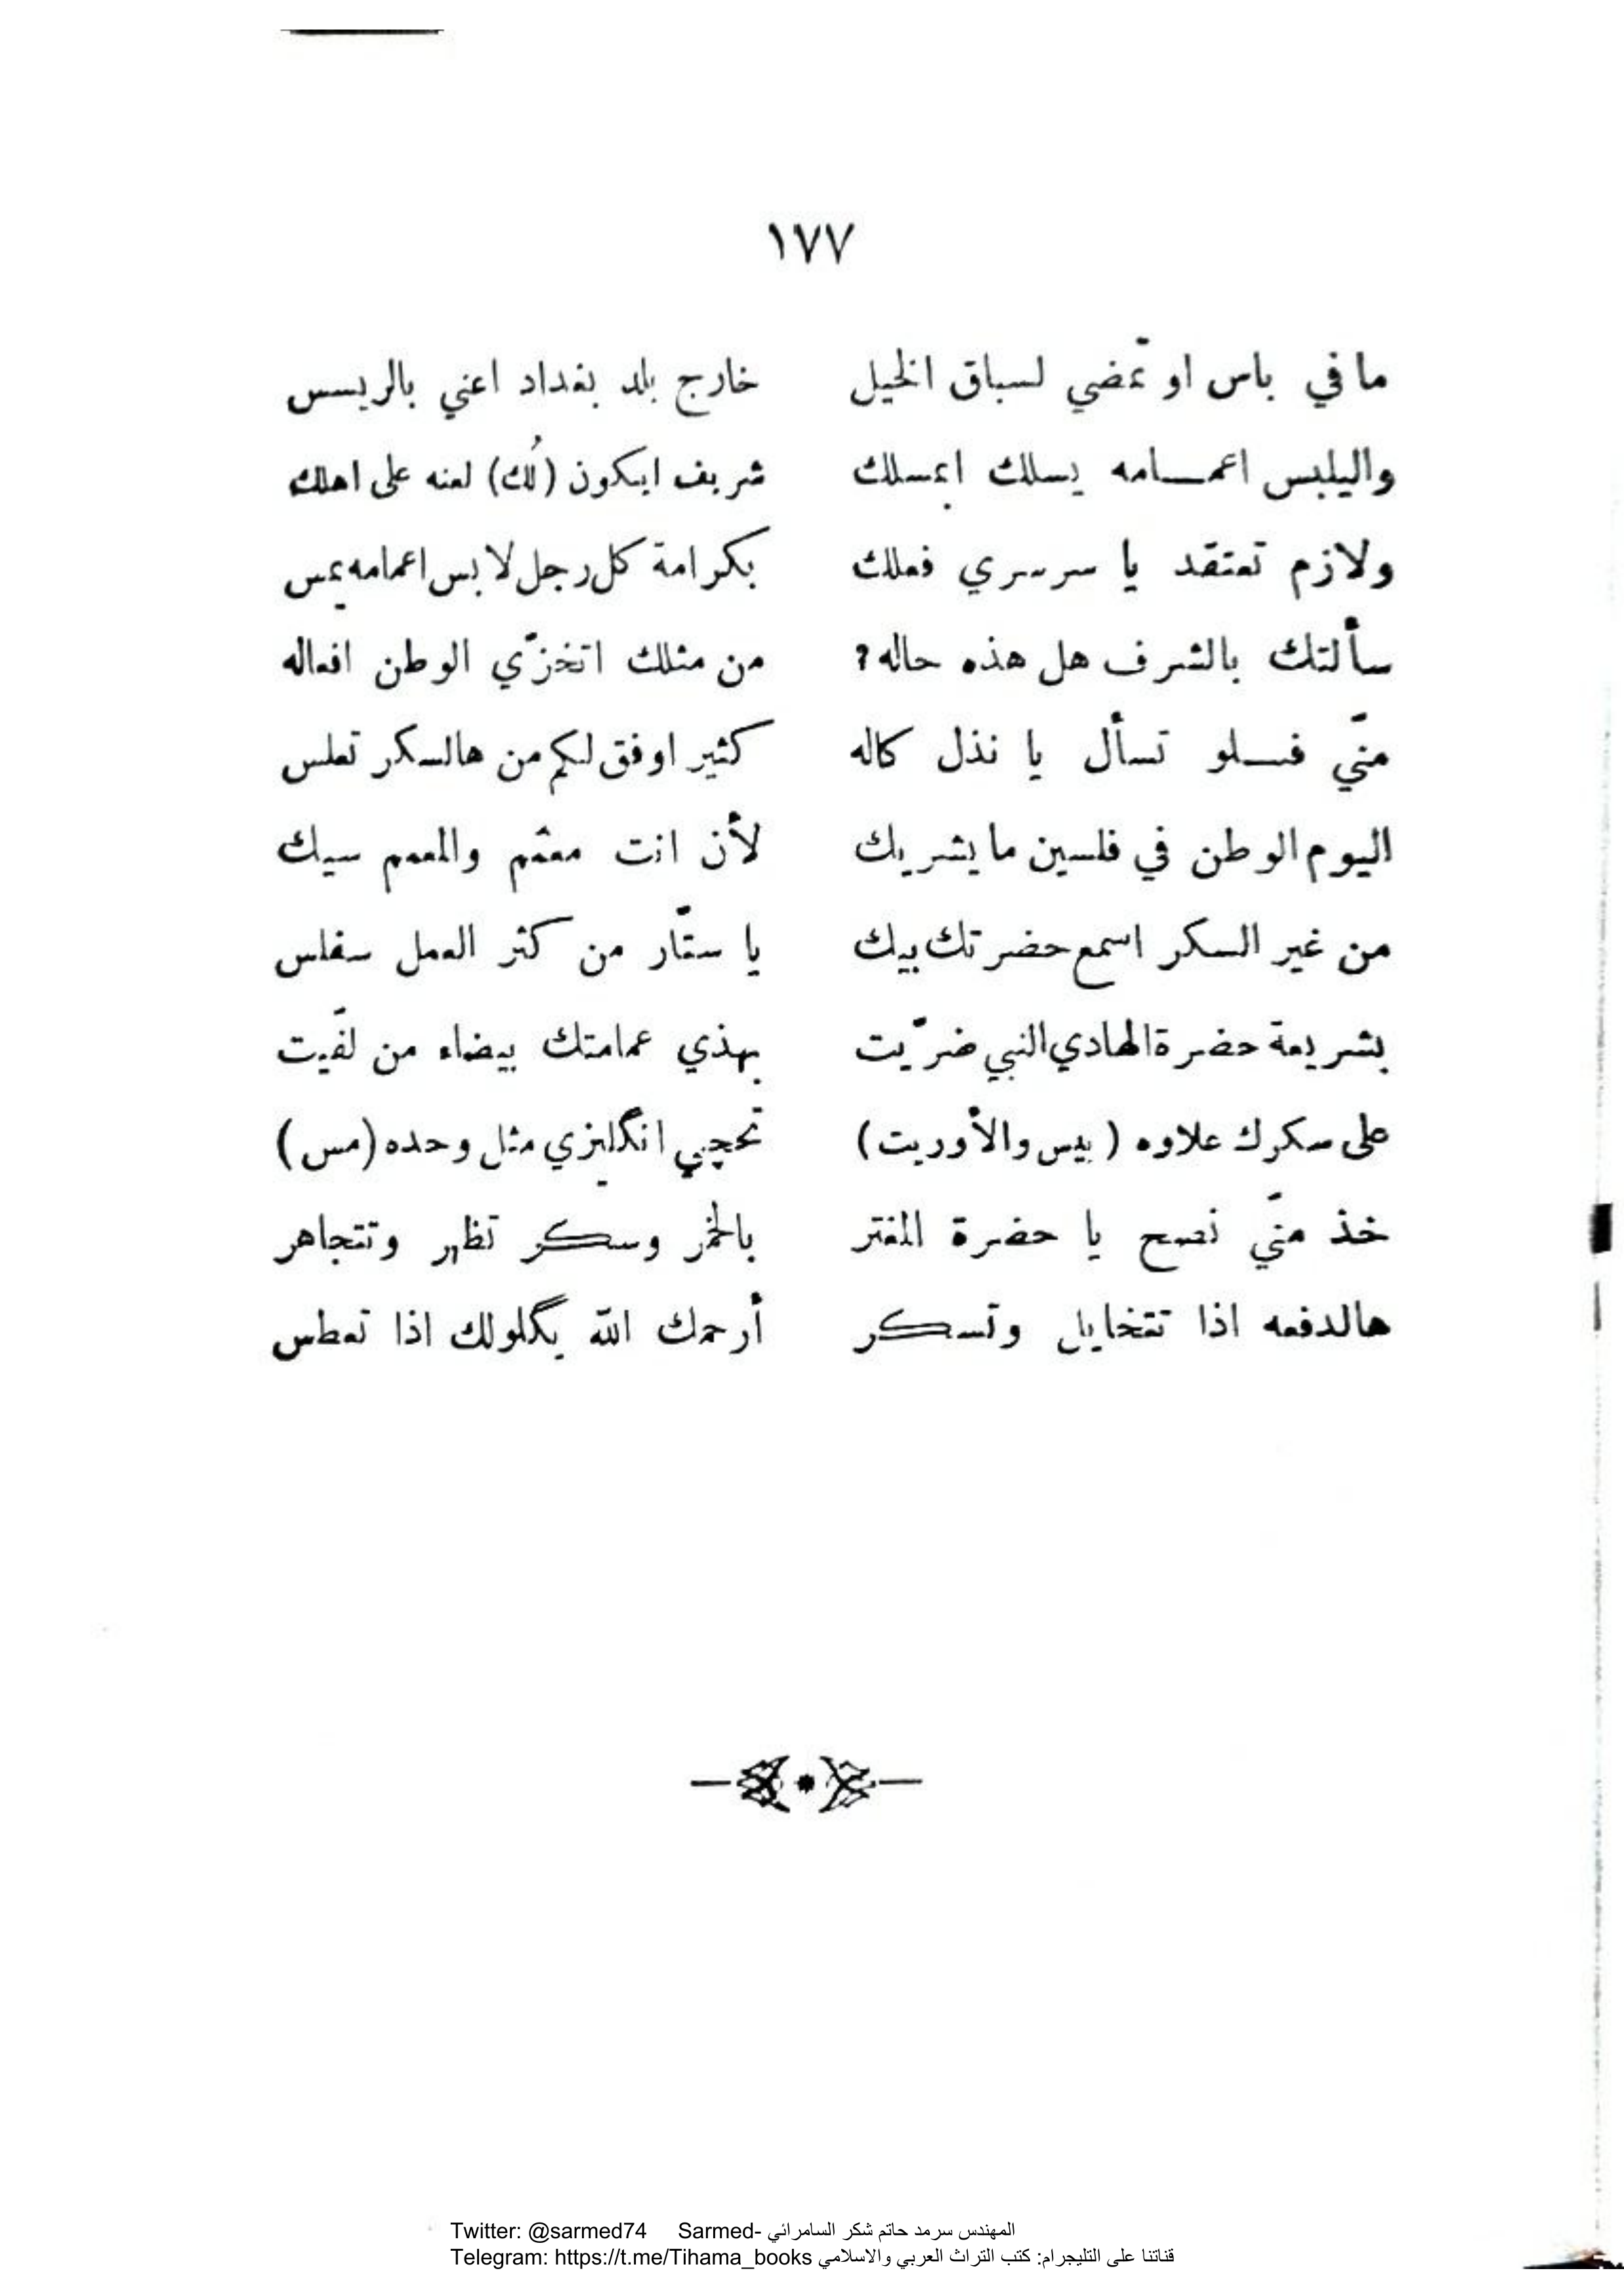 ١٧٧
ما في باس او تمّضي لسباق الخيل خارج بلد بغداد اعني بالريسس
واليلبس اعمــامه يسلك ابمسلك شريف ايكون (لُك) لعنه على اهلك
ولازم تعتقد يا سرسري فعلك بكرامة كل رجل لابس اعمامه يمس
سألتك بالشرف هل هذه حاله؟ من مثلك اتخزّي الوطن افعاله
منّي فــلو تسأل يا نذل كاله كثير اوفق لكم من هالسكر تعلس
اليوم الوطن في فلسين ما يشريك لأن انت معمّم والمعمم سيك
من غير السكر اسمع حضرتك بيك يا ستّار من كثر العمل سفلس
بشريعة حضرة الهادي النبي ضرّيت بهذي عمامتك بيضاء من لفّيت
على سكرك علاوه ( بيس والأوريت) تحچي انگليزي مثل وحده (مس)
خذ منّي نصح يا حضرة المغتر بالخمر وسكر تظهر وتتجاهر
هالدفعه اذا تتخايل وتسكر أرحمك الله يگلولك اذا تعطس
Twitter: @sarmed74 Sarmed- المهندس سرمد حاتم شكر السامرائي
Telegram: https://t.me/Tihama_books قناتنا على التليجرام: كتب التراث العربي والاسلامي